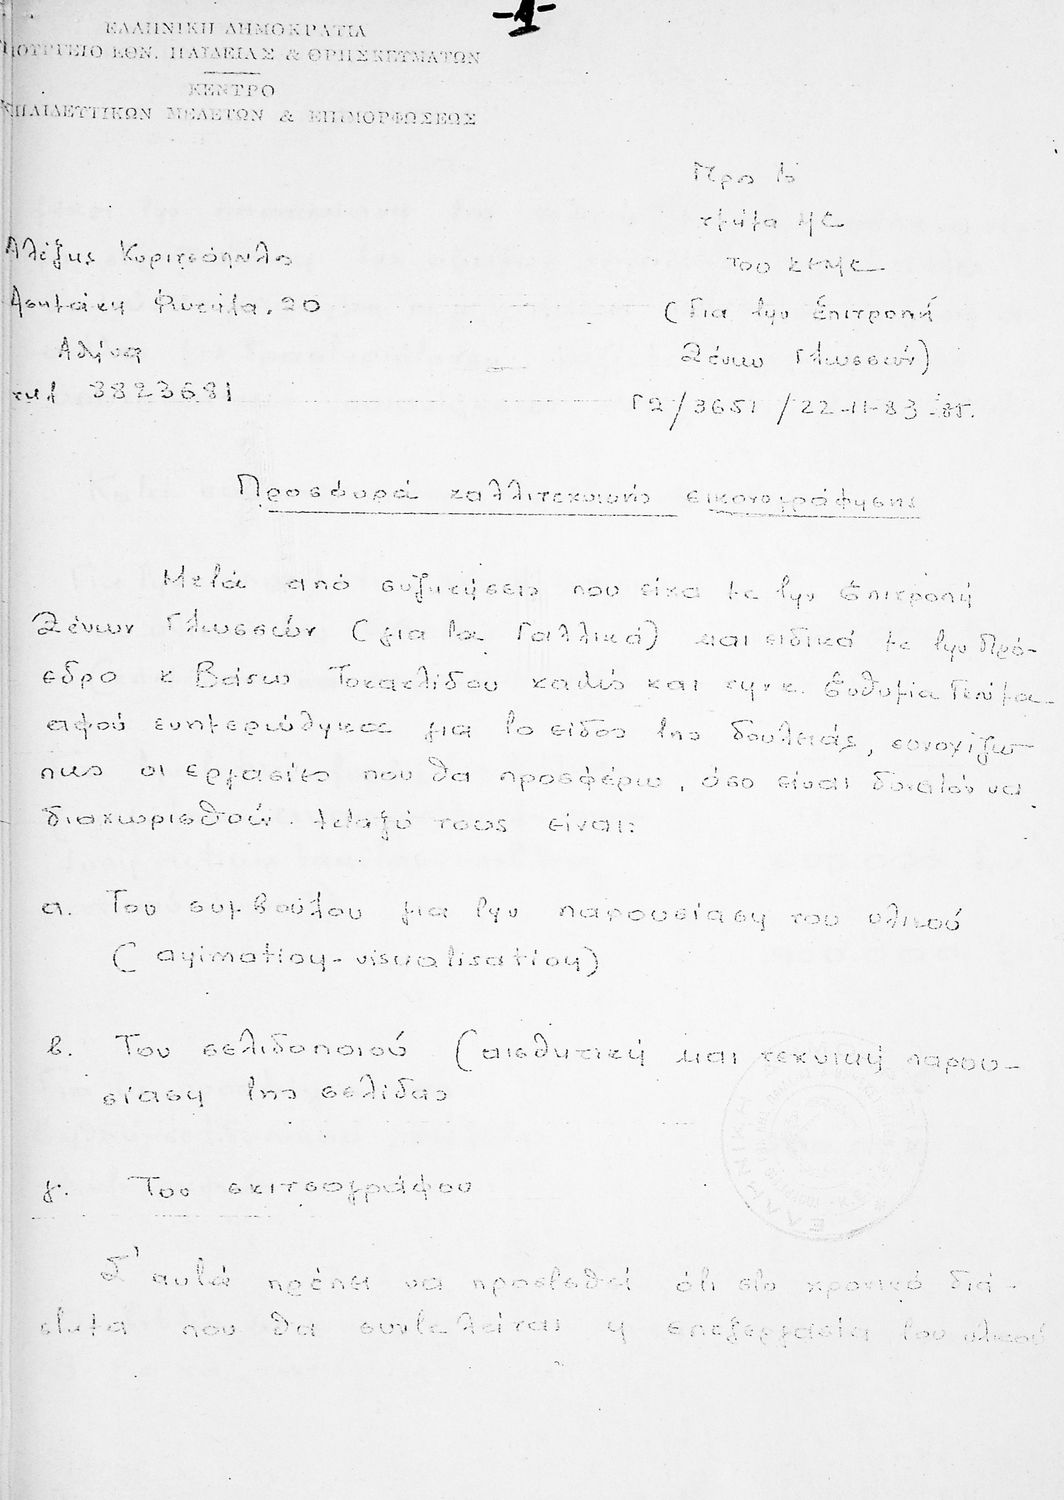 -1-
ΕΛΛΗΝΙΚΗ ΔΗΜΟΚΡΑΤΙΑ
ΥΠΟΥΡΓΕΙΟ ΕΘΝ. ΠΑΙΔΕΙΑΣ & ΘΡΗΣΚΕΥΜΑΤΩΝ
ΚΕΝΤΡΟ
ΕΚΠΑΙΔΕΥΤΙΚΩΝ ΜΕΛΕΤΩΝ & ΕΠΙΜΟΡΦΩΣΕΩΣ
Προς το
τμήμα
του ΚΕΜΕ
(για την Επιτροπή
Ξένων Γλωσσών)
Γ2/3651/22-11-83
Αλέξης Κυριτσόπουλος
Ασημάκη Φωτήλα. 20
Αθήνα
τηλ 3823681
Προσφορά καλλιτεχνικής εικονογράφησης
Μετά από συζητήσεις που είχα με την Επιτροπή
Ξένων Γλωσσών (για τα Γαλλικά) και ειδικά με την Πρό-
εδρο κ Βάσω Τοκατλίδου καθώς και την κ. Ευθυμία
αφού ενημερώθηκα για το είδος της δουλειάς,
πως οι εργασίες που θα προσφέρω, όσο είναι δυνατόν να
διαχωρισθούν μεταξύ τους είναι:
α. Του συμβούλου για την παρουσίαση του υλικού
(animation-visualisation)
β. Του σελιδοποιού (αισθητική και τεχνική παρου-
σίαση της σελίδας
γ. Του σκιτσογράφου
Σ' αυτά πρέπει να προστεθεί ότι στο χρονικό διά-
στημα που θα συντελείται η επεξεργασία του υλικού